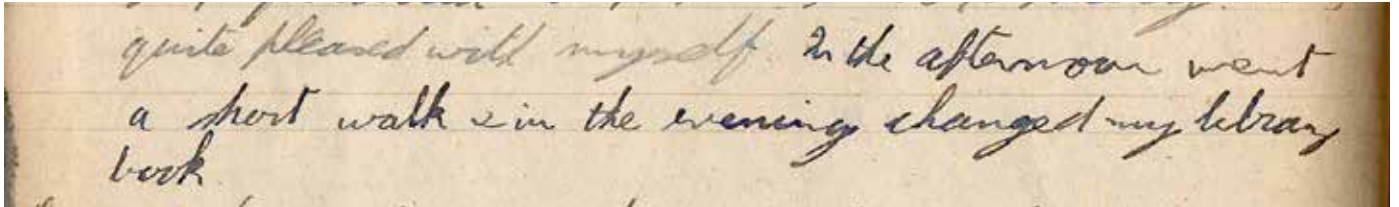 quite pleased with myself. In the afternoon went
a short walk & in the evening changed my library
book.